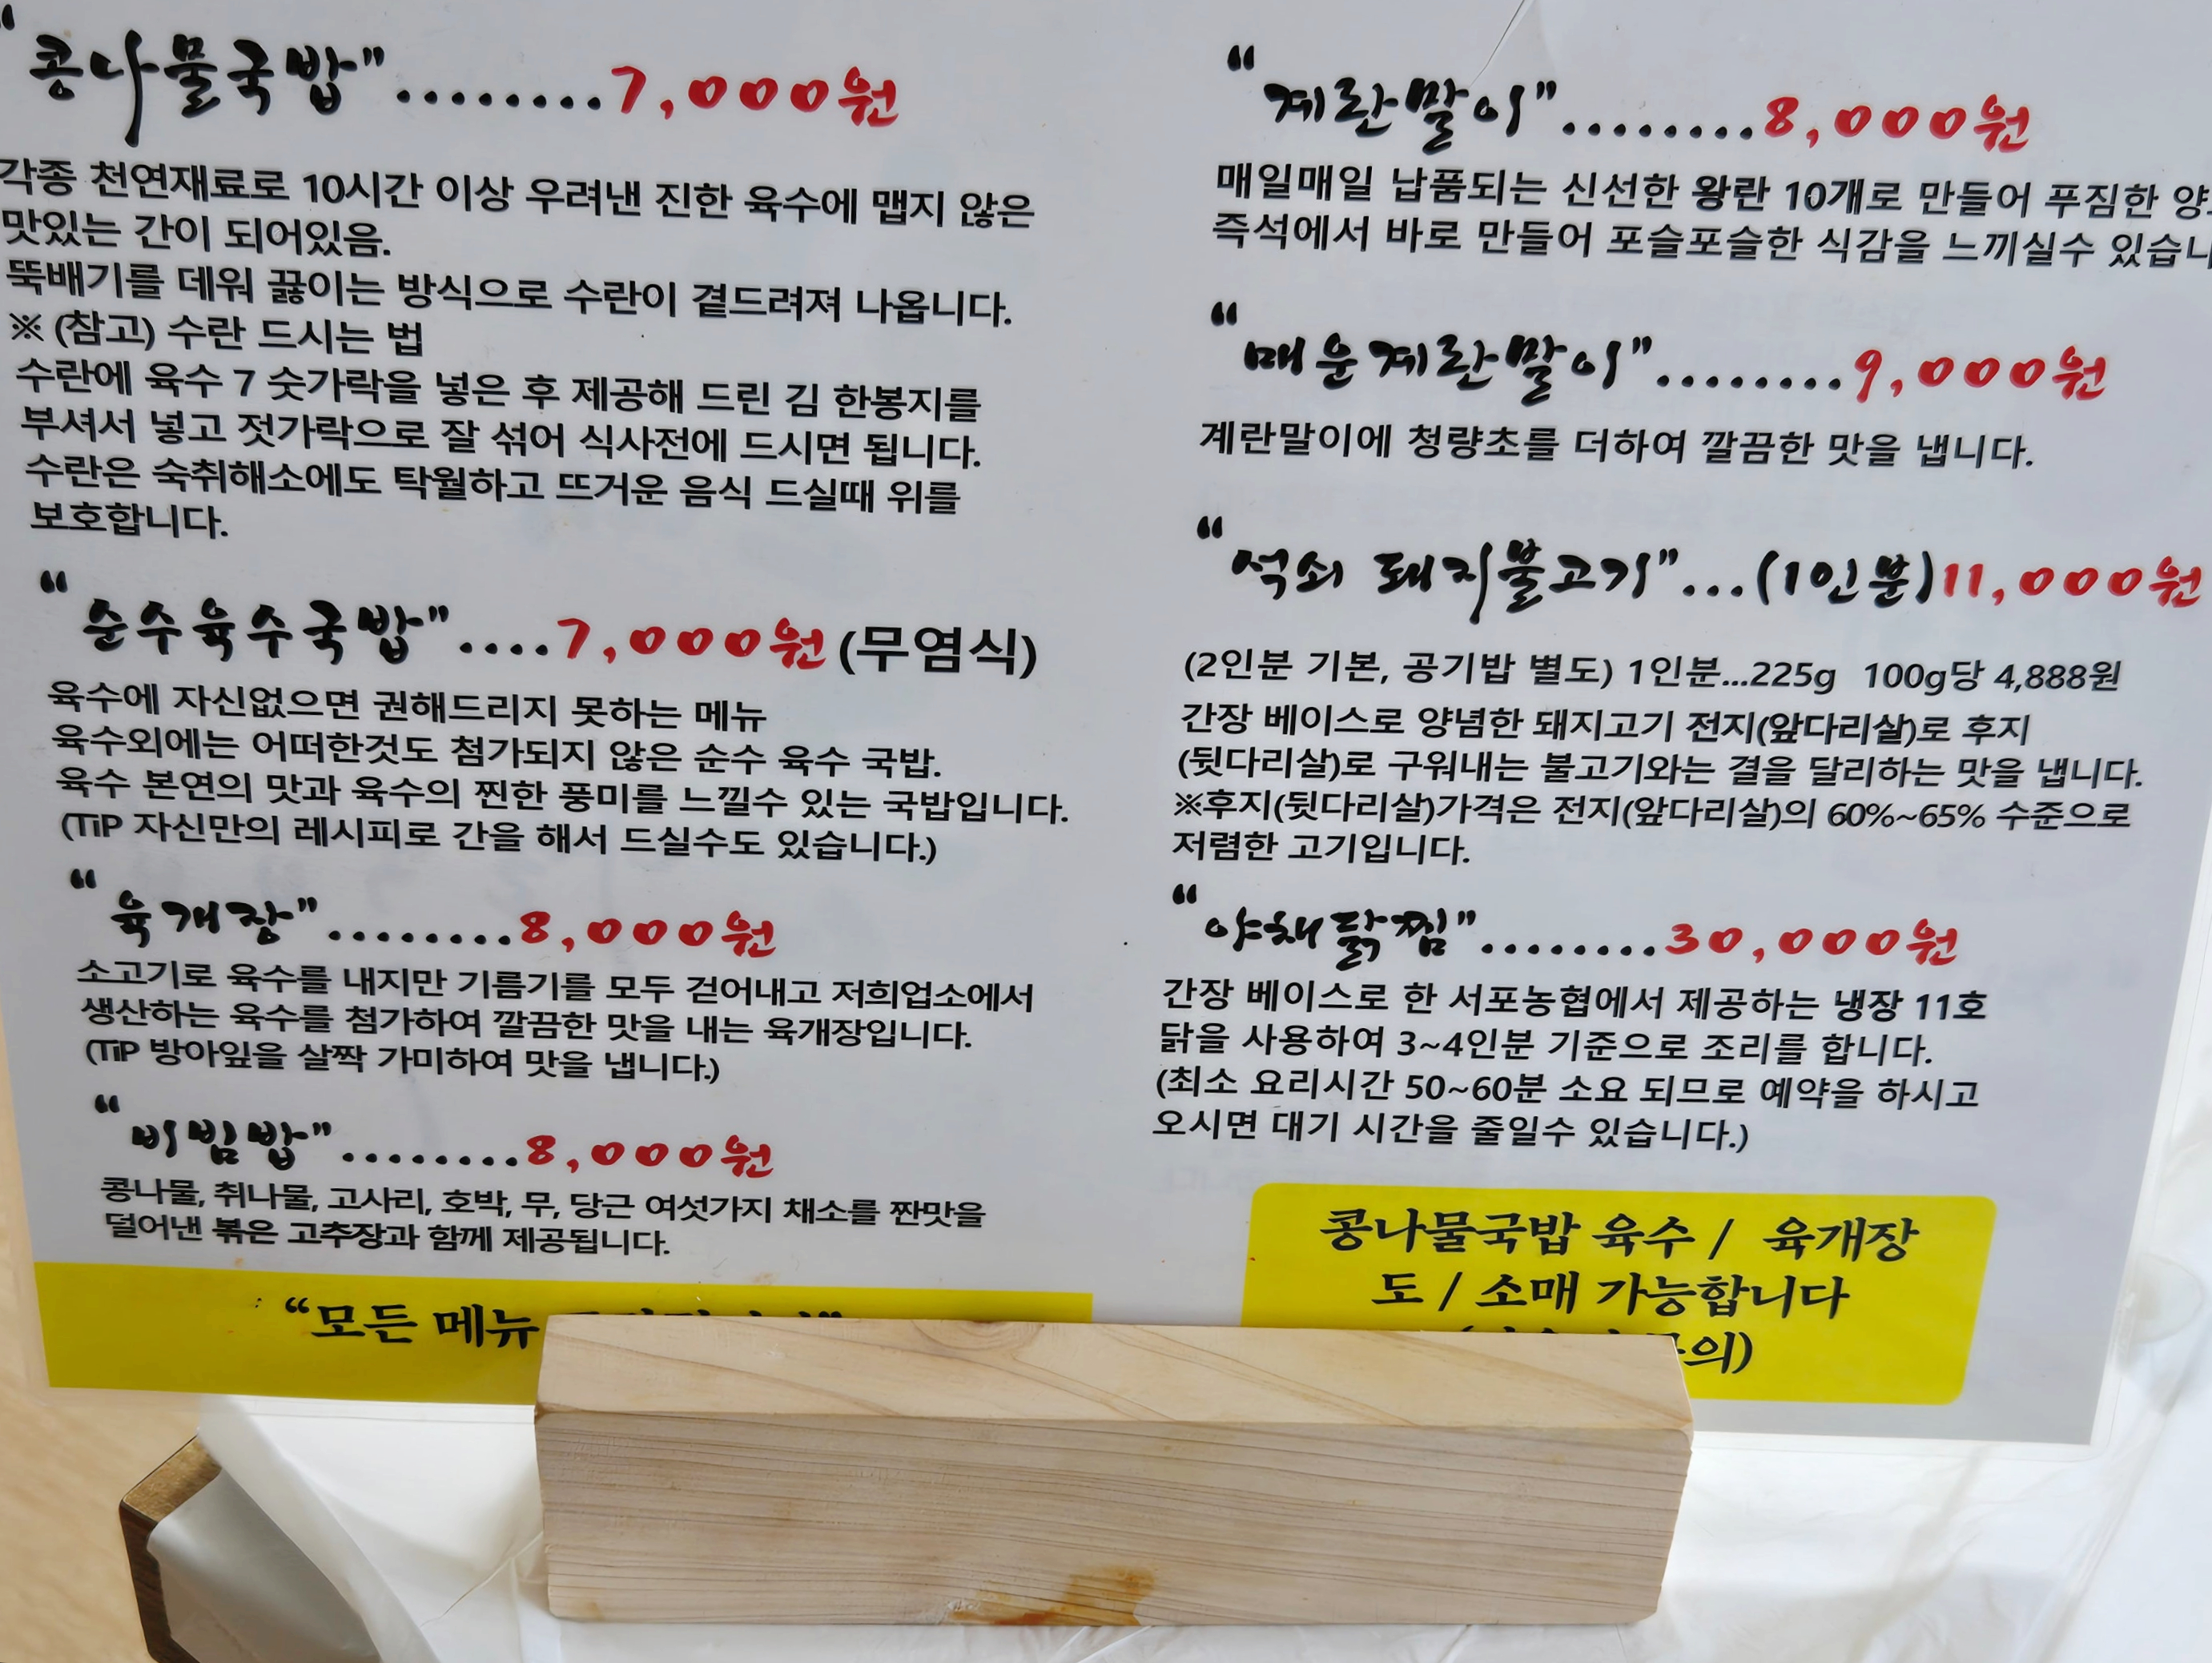 "콩나물국밥"........7,000원
각종 천연재료로 10시간 이상 우려낸 진한 육수에 맵지 않은
맛있는 간이 되어있음.
뚝배기를 데워 끓이는 방식으로 수란이 곁드려져 나옵니다.
※ (참고) 수란 드시는 법
수란에 육수 7 숫가락을 넣은 후 제공해 드린 김 한봉지를
부셔서 넣고 젓가락으로 잘 섞어 식사전에 드시면 됩니다.
수란은 숙취해소에도 탁월하고 뜨거운 음식 드실때 위를
보호합니다.
"순수육수국밥"....7,000원 (무염식)
육수에 자신없으면 권해드리지 못하는 메뉴
육수외에는 어떠한것도 첨가되지 않은 순수 육수 국밥.
육수 본연의 맛과 육수의 찐한 풍미를 느낄수 있는 국밥입니다.
(TiP 자신만의 레시피로 간을 해서 드실수도 있습니다.)
"육개장"........8,000원
소고기로 육수를 내지만 기름기를 모두 걷어내고 저희업소에서
생산하는 육수를 첨가하여 깔끔한 맛을 내는 육개장입니다.
(TiP 방아잎을 살짝 가미하여 맛을 냅니다.)
"비빔밥"........8,000원
콩나물, 취나물, 고사리, 호박, 무, 당근 여섯가지 채소를 짠맛을
덜어낸 볶은 고추장과 함께 제공됩니다.
"모든 메뉴
"계란말이"........8,000원
매일매일 납품되는 신선한 왕란 10개로 만들어 푸짐한
즉석에서 바로 만들어 포슬포슬한 식감을 느끼실수
"매운계란말이"........9,000원
계란말이에 청량초를 더하여 깔끔한 맛을 냅니다.
"석쇠 돼지불고기"...(1인분)11,000원
(2인분 기본, 공기밥 별도) 1인분...225g 100g당 4,888원
간장 베이스로 양념한 돼지고기 전지(앞다리살)로 후지
(뒷다리살)로 구워내는 불고기와는 결을 달리하는 맛을 냅니다.
※후지(뒷다리살)가격은 전지(앞다리살)의 60%~65% 수준으로
저렴한 고기입니다.
"야채닭찜"........30,000원
간장 베이스로 한 서포농협에서 제공하는 냉장 11호
닭을 사용하여 3~4인분 기준으로 조리를 합니다.
(최소 요리시간 50~60분 소요 되므로 예약을 하시고
오시면 대기 시간을 줄일수 있습니다.)
콩나물국밥 육수 / 육개장
도 / 소매 가능합니다